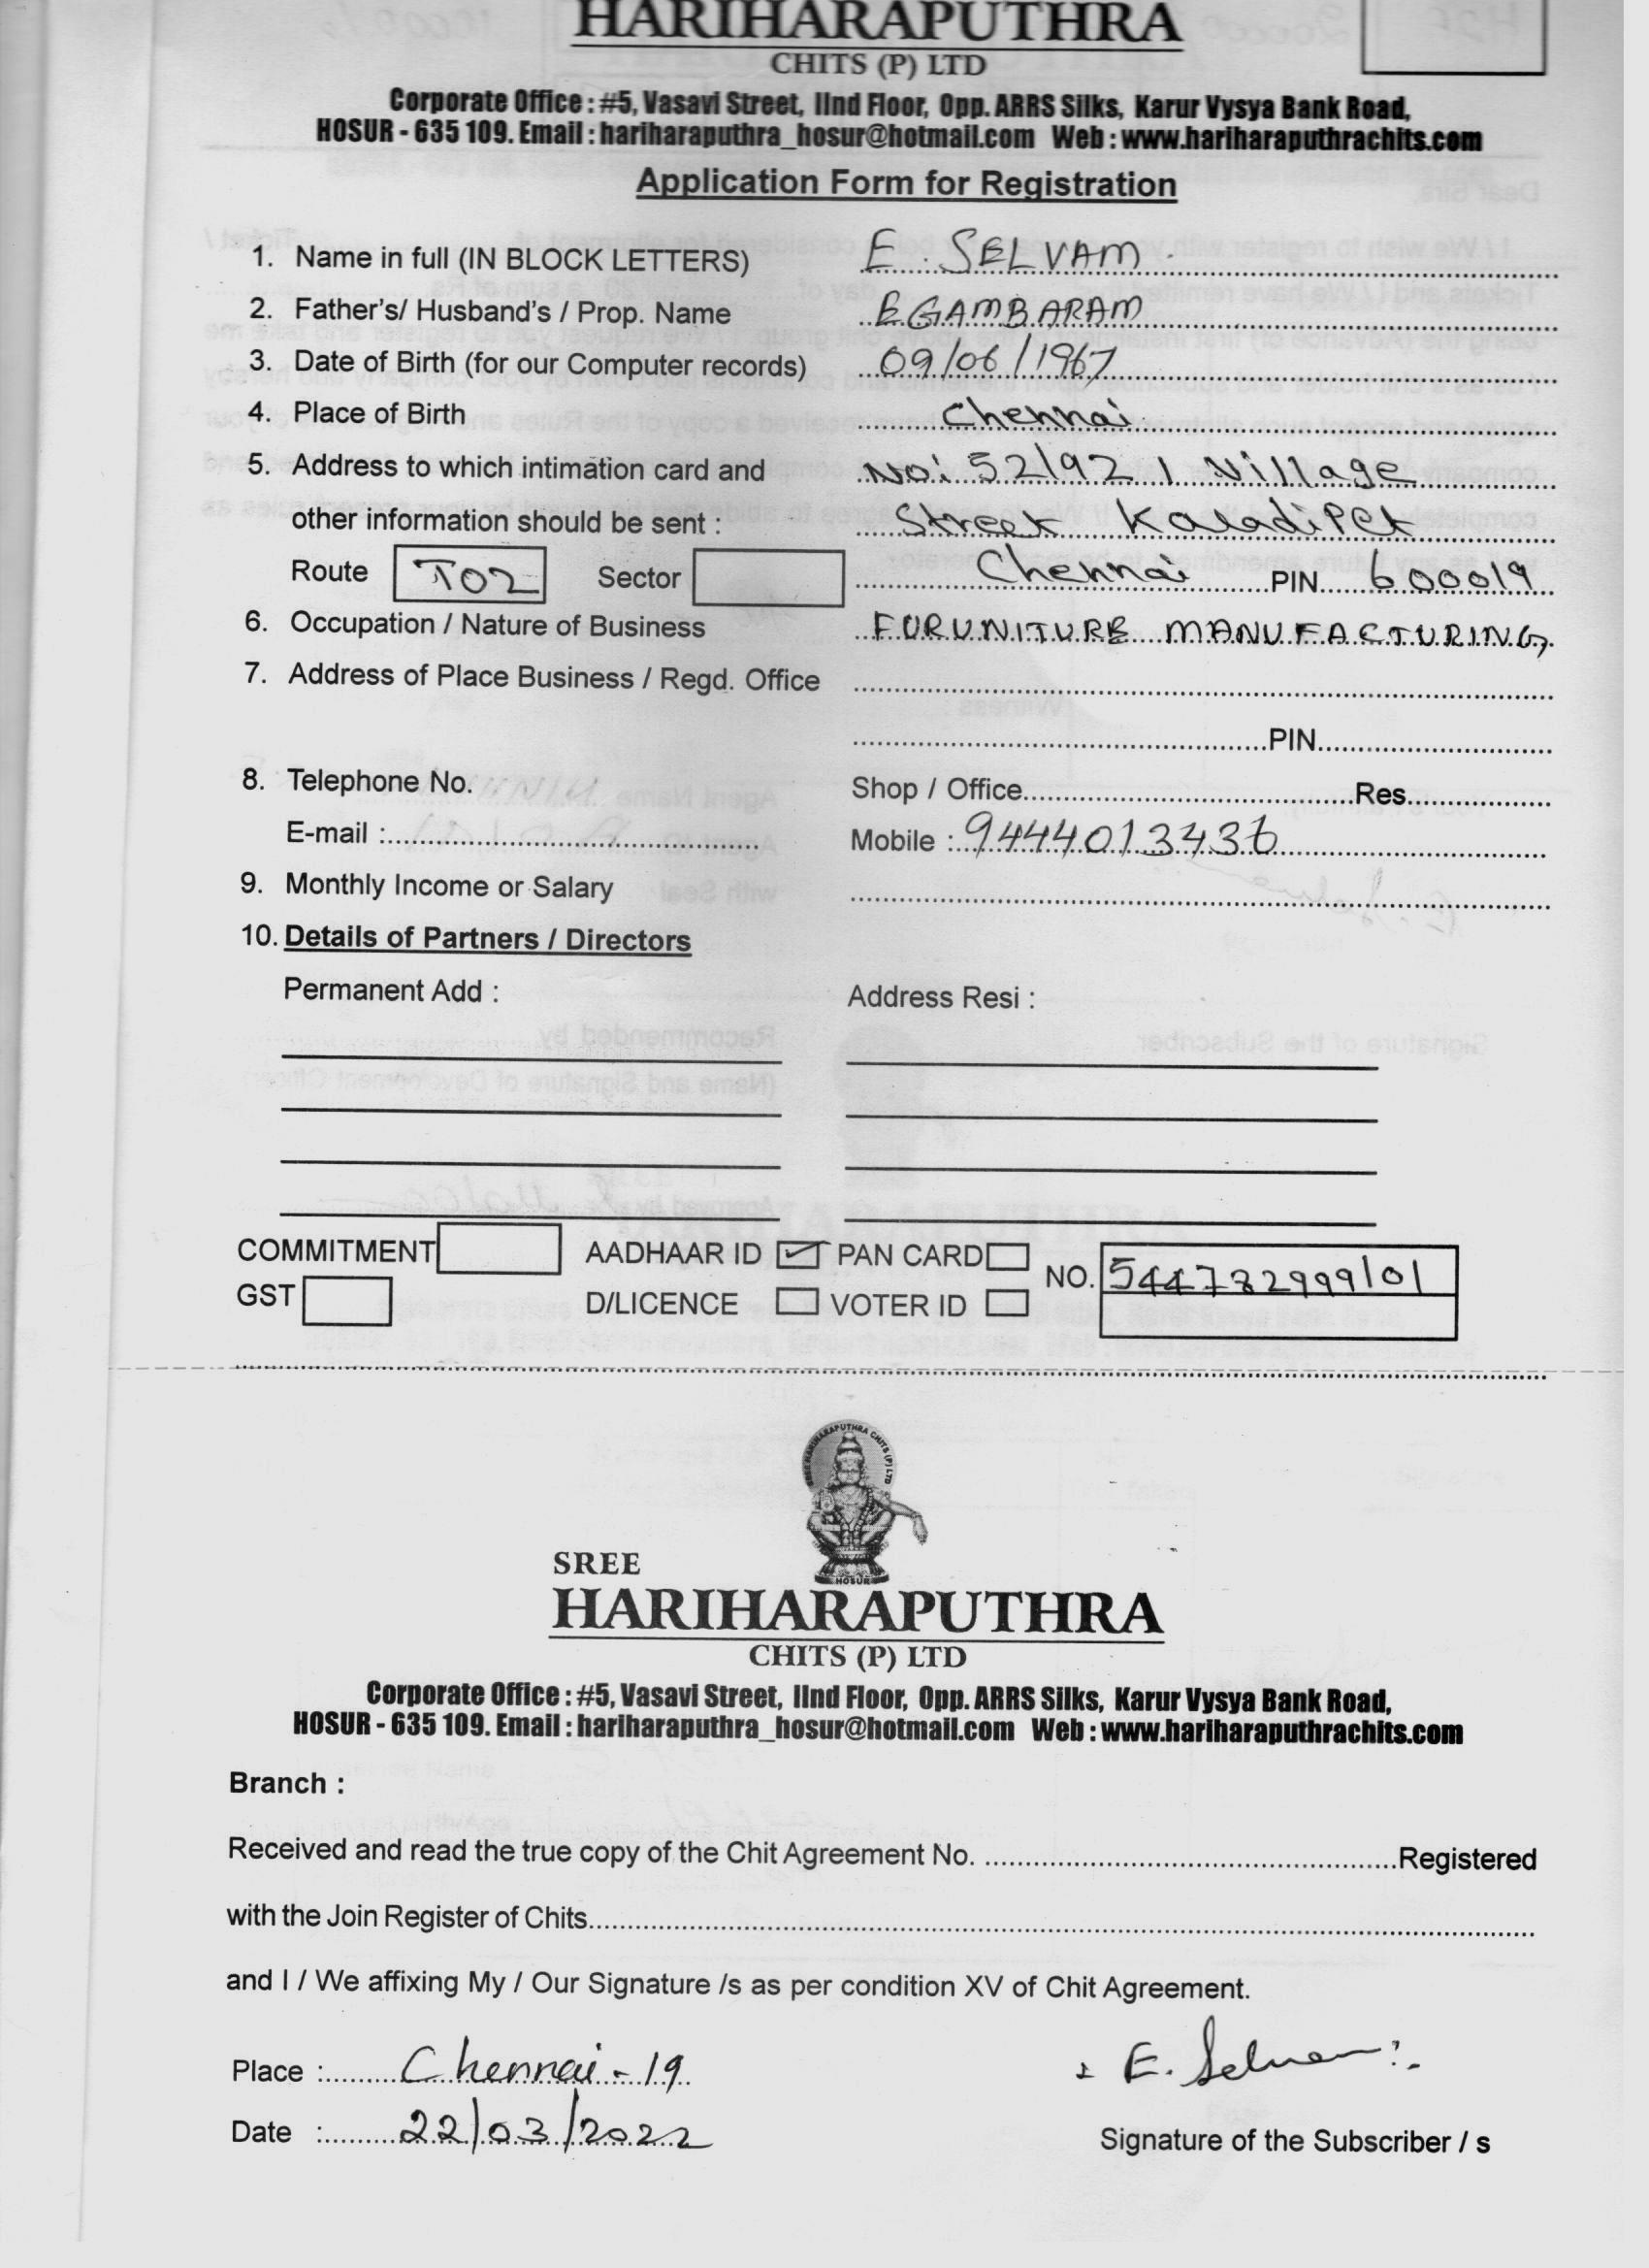 HARIHARAPUTHRA
CHITS (P) LTD
Corporate Office : #5, Vasavi Street, IInd Floor, Opp. ARRS Silks, Karur Vysya Bank Road,
HOSUR - 635 109. Email : hariharaputhra_hosur@hotmail.com Web : www.hariharaputhrachits.com
Application Form for Registration
1. Name in full (IN BLOCK LETTERS) E. SELVAM.
2. Father's/ Husband's / Prop. Name EGAMBARAM
3. Date of Birth (for our Computer records) 09/06/1967
4. Place of Birth Chennai
5. Address to which intimation card and No: 52/92, Village
other information should be sent : Street
Route T02 Sector Chennai PIN 600019
6. Occupation / Nature of Business FURUNITURE MANUFACTURING,
7. Address of Place Business / Regd. Office
PIN
8. Telephone No. Shop / Office Res.
E-mail : Mobile : 9444013436
9. Monthly Income or Salary
10. Details of Partners / Directors
Permanent Add : Address Resi :
COMMITMENT AADHAAR ID ✓ PAN CARD NO. 544782999101
GST D/LICENCE VOTER ID
SREE HARIHARAPUTHRA CHITS (P) LTD
HOSUR
SREE
HARIHARAPUTHRA
CHITS (P) LTD
Corporate Office : #5, Vasavi Street, IInd Floor, Opp. ARRS Silks, Karur Vysya Bank Road,
HOSUR - 635 109. Email : hariharaputhra_hosur@hotmail.com Web : www.hariharaputhrachits.com
Branch :
Received and read the true copy of the Chit Agreement No. Registered
with the Join Register of Chits
and I / We affixing My / Our Signature /s as per condition XV of Chit Agreement.
Place : Chennai - 19
E. Selvam
Date : 22/03/2022
Signature of the Subscriber / s